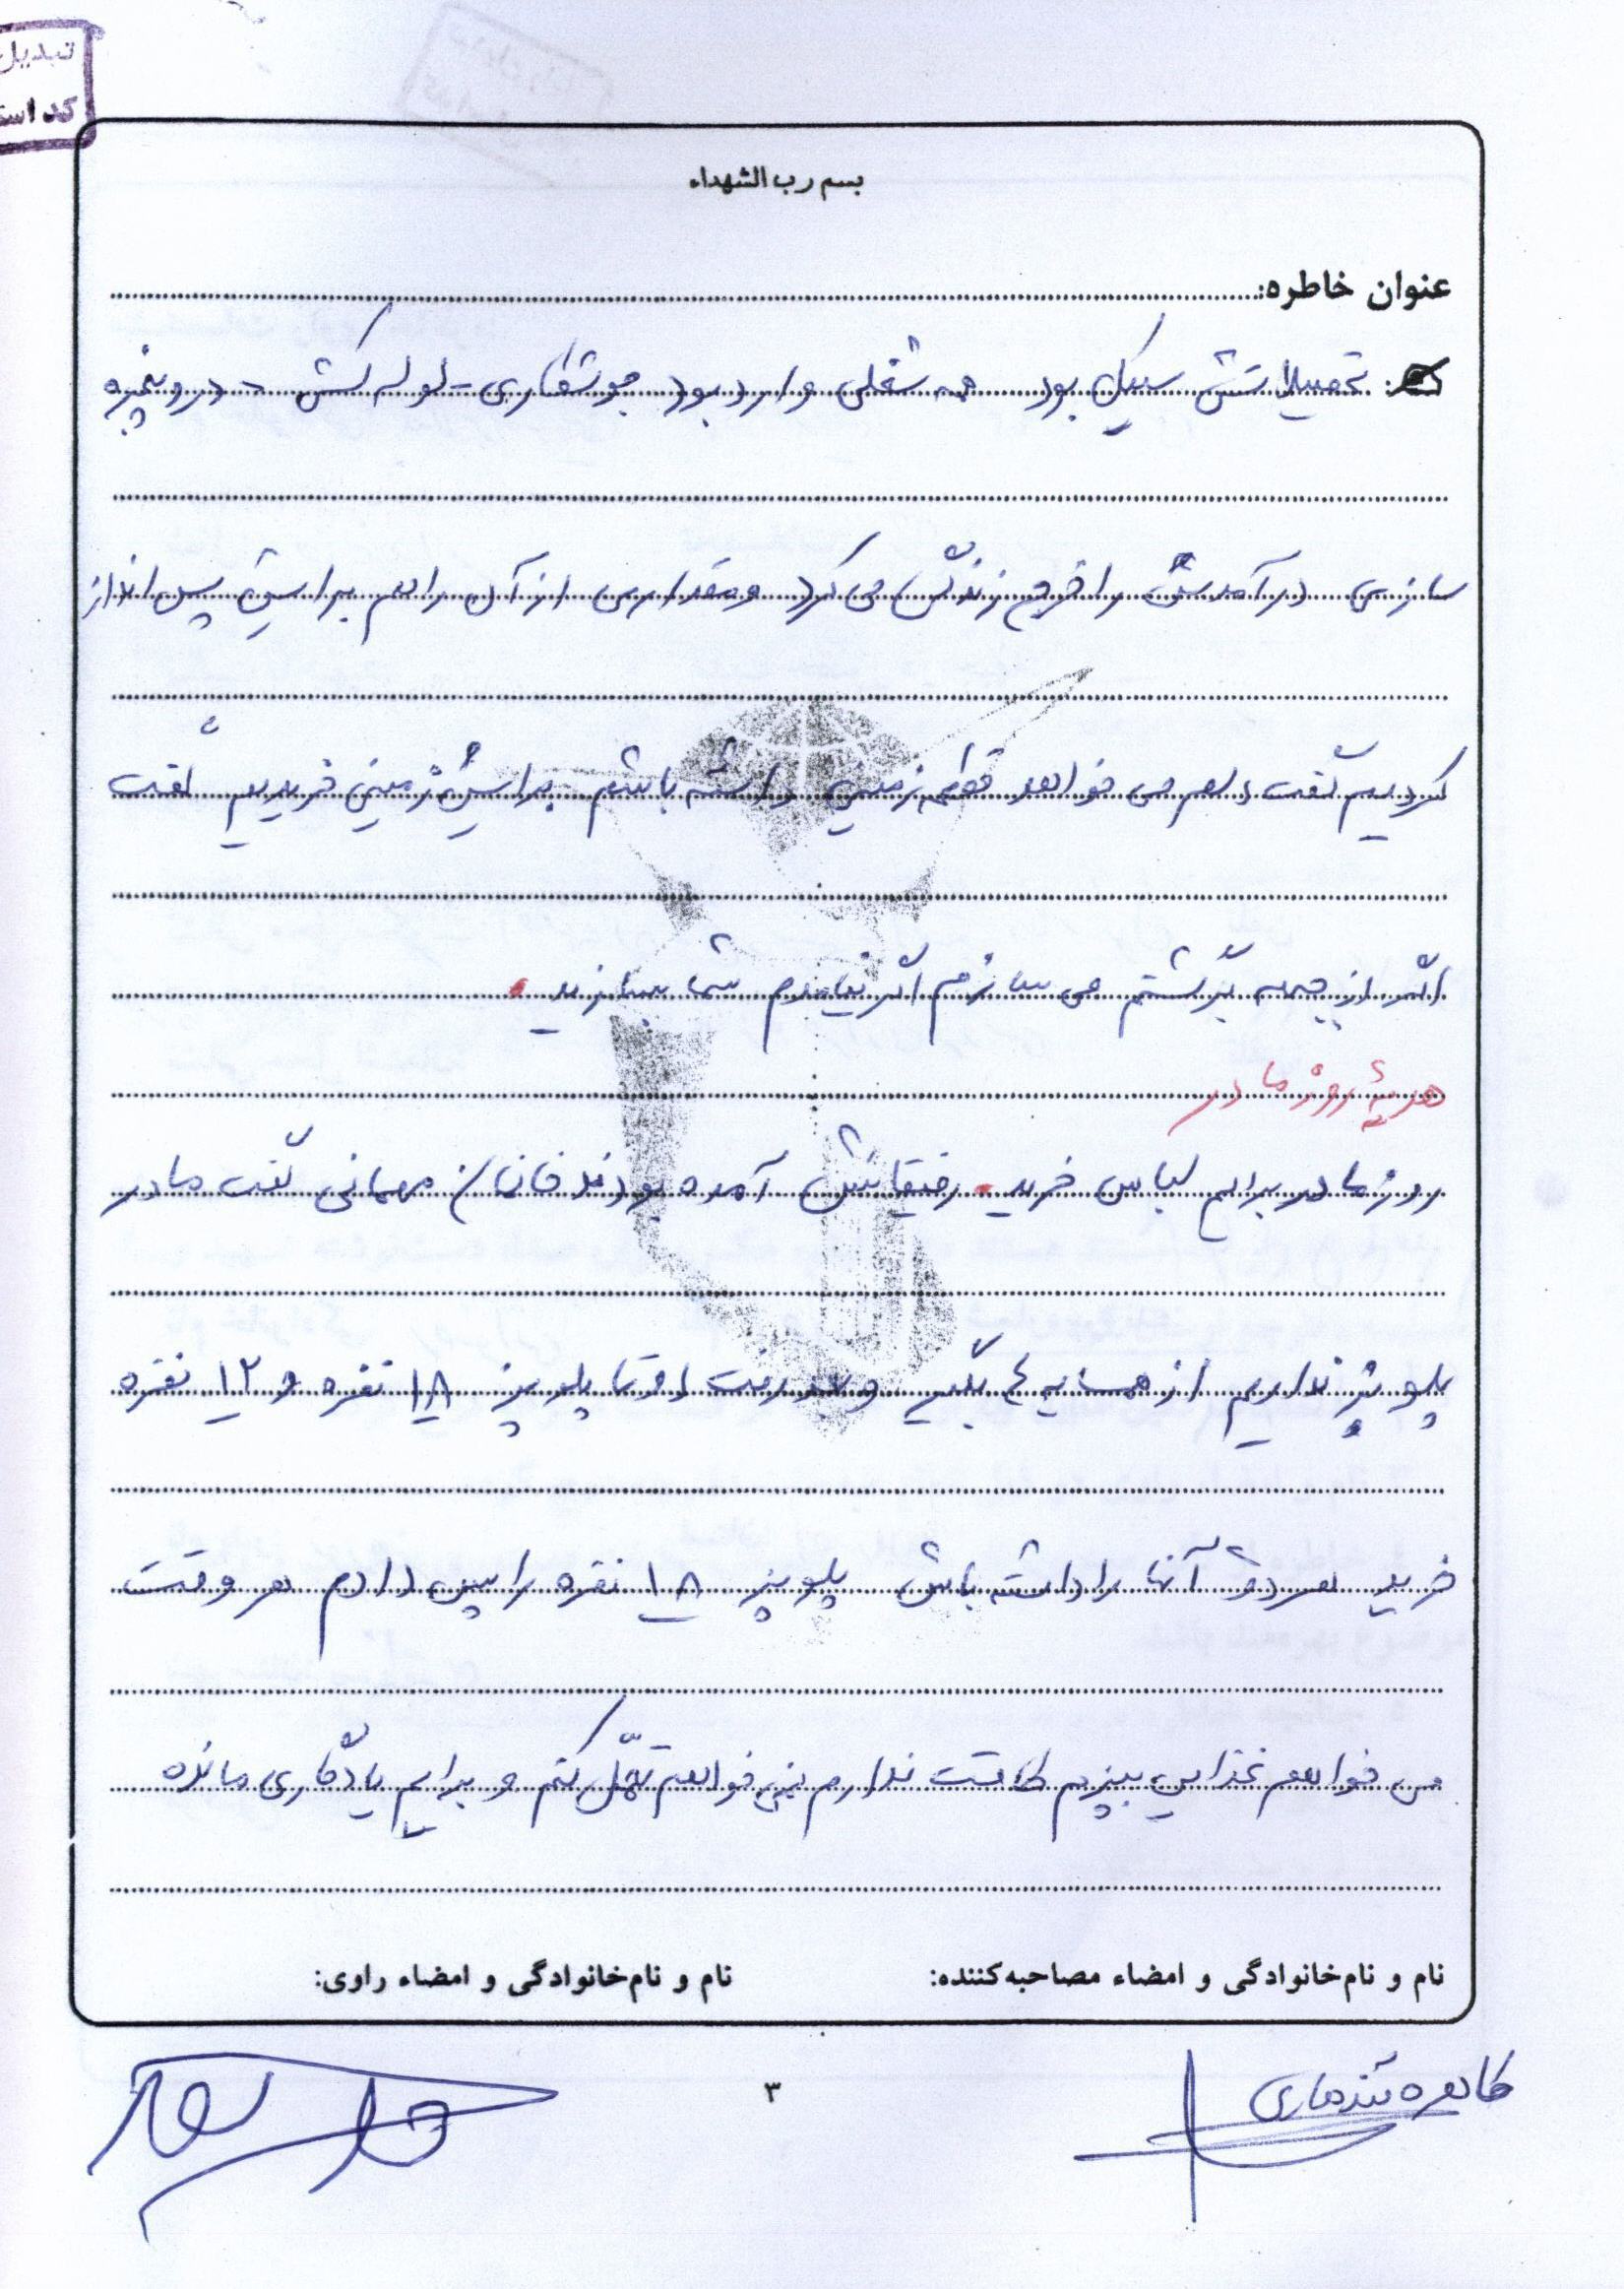 تبدیل
کد است
بسم رب الشهداء
عنوان خاطره:
تحصیلاتش سیکل بود همه شغلی وارد بود جوشکاری - لوله کش - در و پنجره
سازی درآمدش را خرج زندگی می کرد و مقداری از آن را هم برایش پس انداز
کردیم گفت دلم می خواهد قطعه زمینی داشته باشم برایش زمینی خریدیم گفت
اگر از جبهه برگشتم می سازم اگر نیامدم شما بسازید.
هدیهٔ روز مادر
روز مادر برایم لباس خرید. رفیقانش آمده بودند خانمان مهمانی گفت مادر
پلوپز نداریم از همسایه بگیر و رفت دو تا پلوپز ۱۸ نفره و ۱۲ نفره
خرید هر دو آنها را داشته باش پلوپز ۱۸ نفره را پس دادم هر وقت
می خواهم غذایی بپزم طاقت ندارم نمی خواهم تحمل کنم و برایم یادگاری مانده
نام و نام خانوادگی و امضاء مصاحبه کننده: نام و نام خانوادگی و امضاء راوی:
طاهره
۳